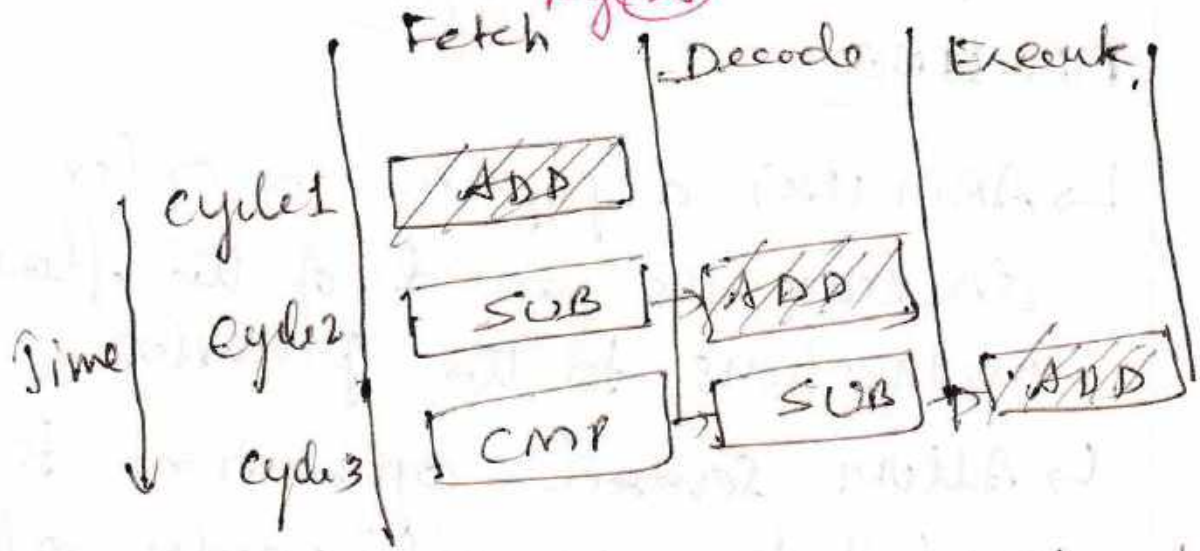 Fetch Decode Execute
Cycle1 ADD
Time Cycle2 SUB ADD
Cycle3 CMP SUB ADD